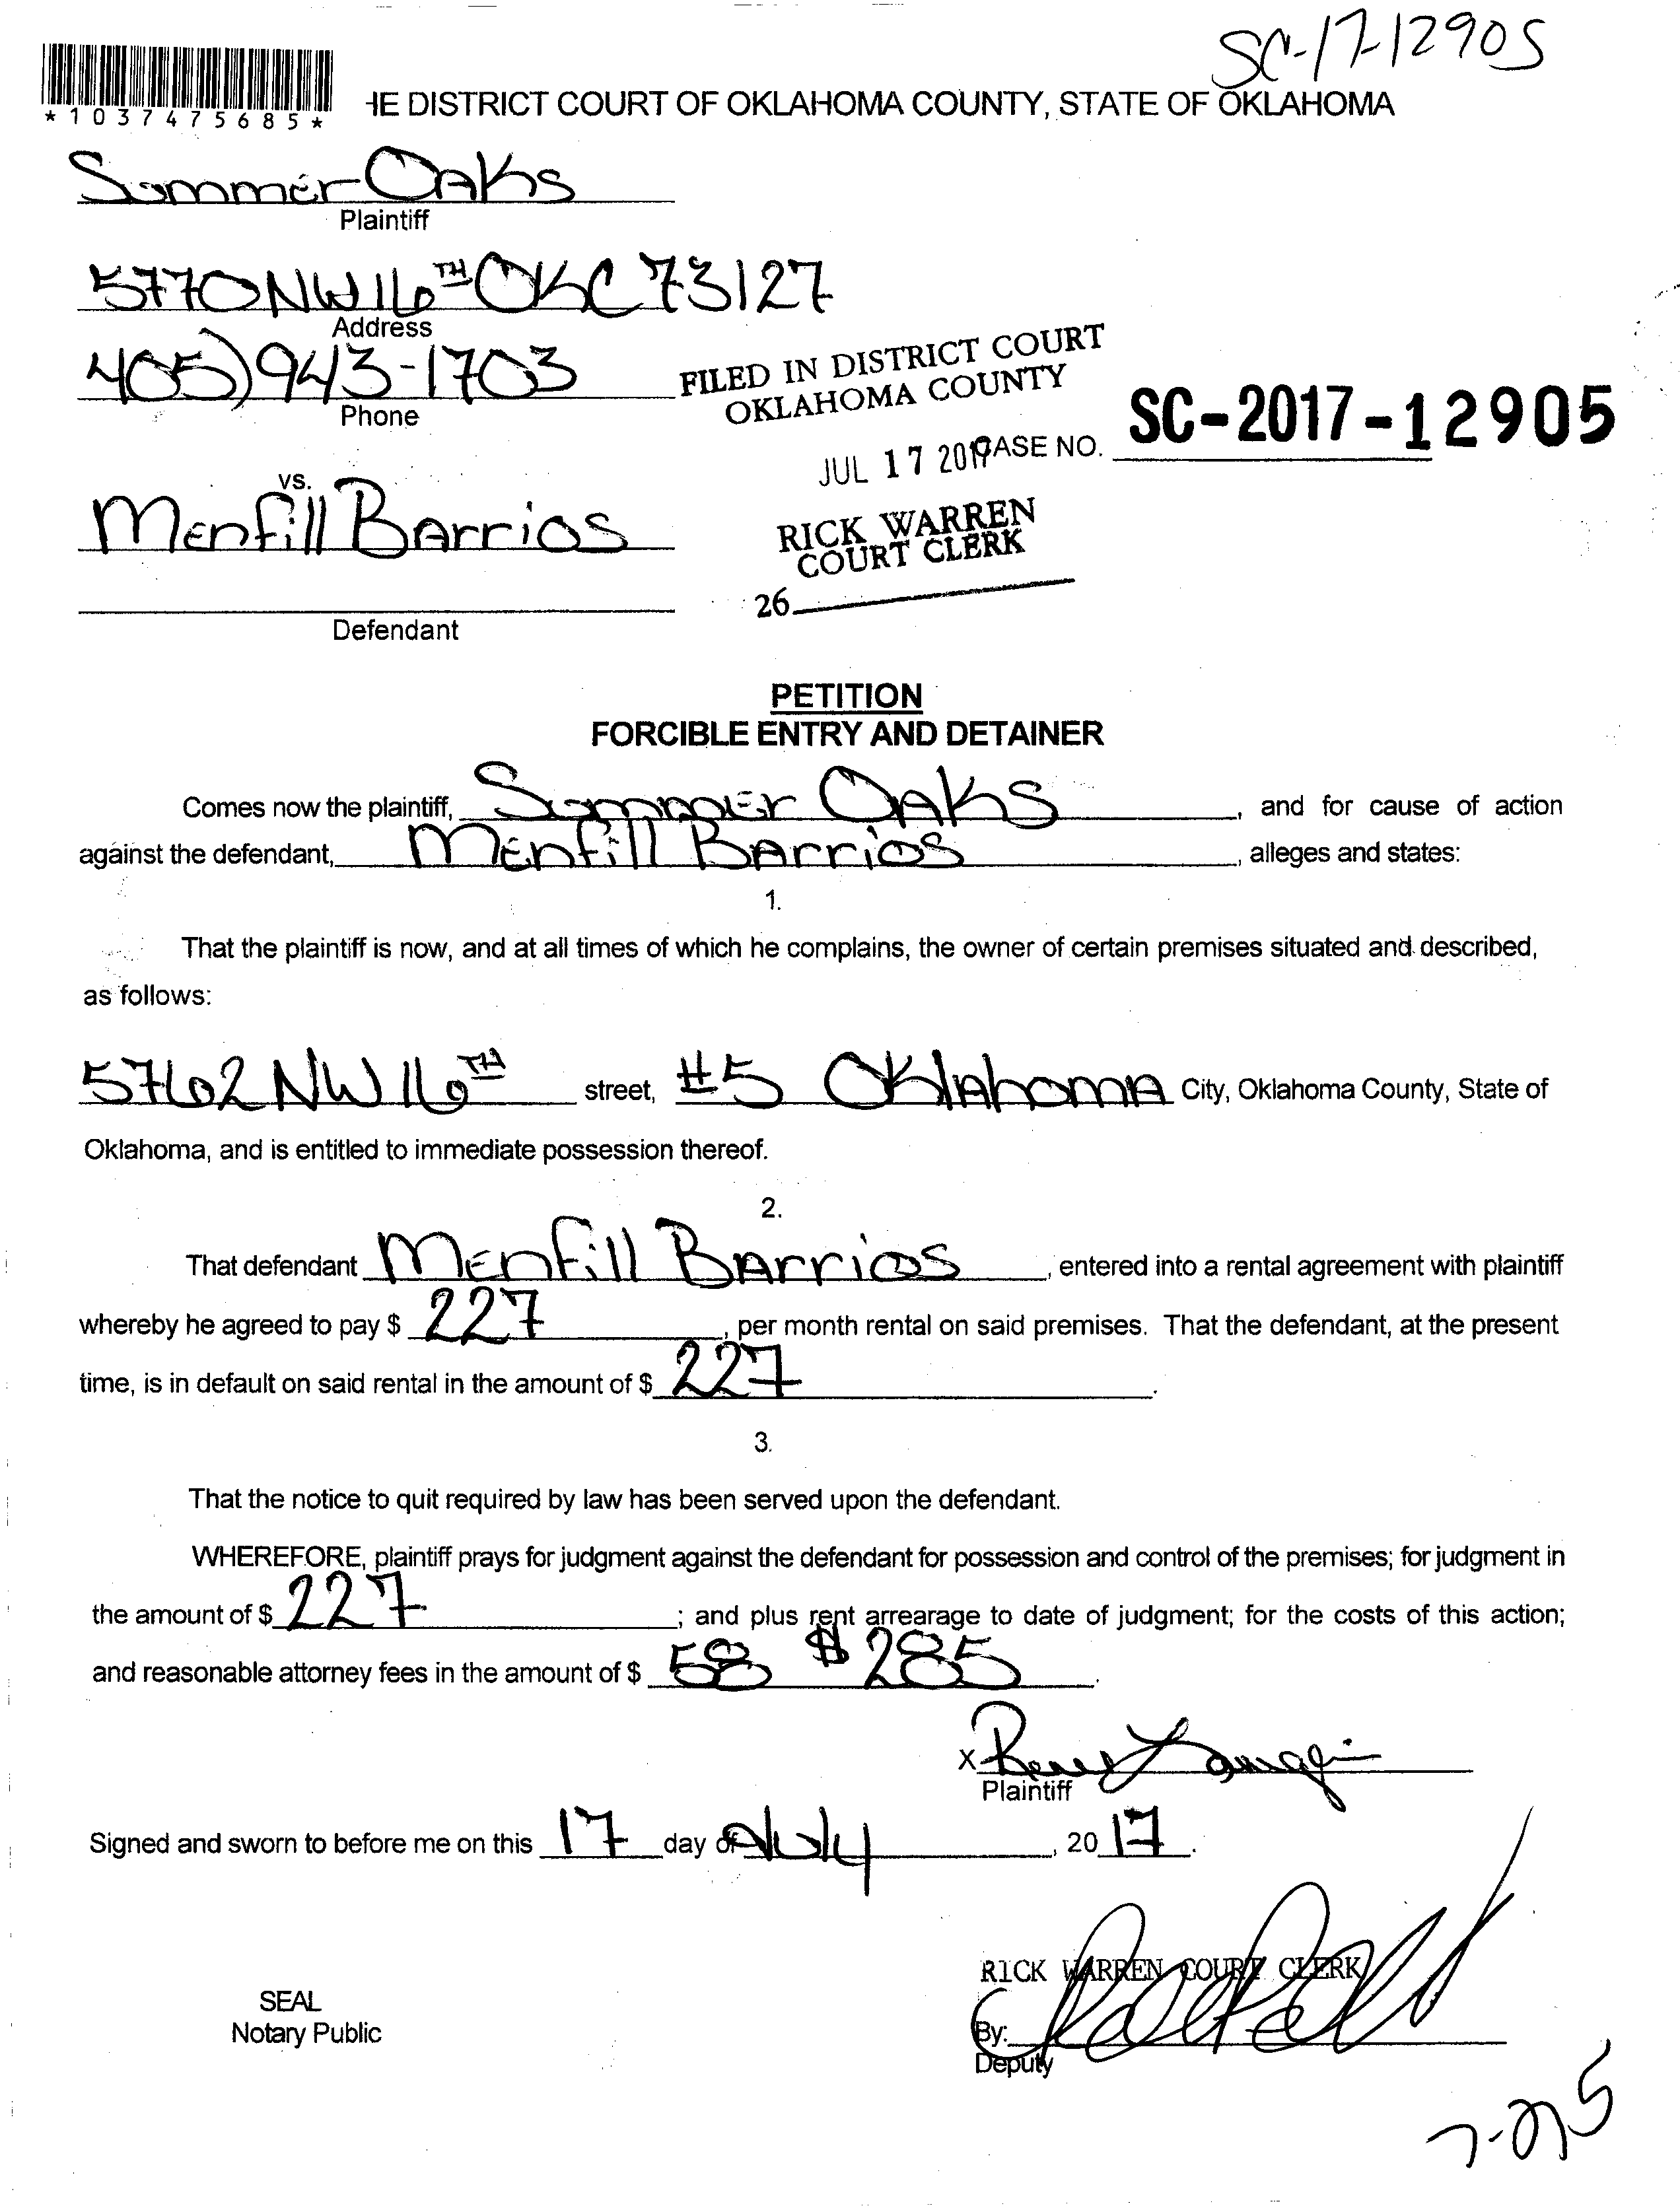 SC-17-12905
*1037475685*
HE DISTRICT COURT OF OKLAHOMA COUNTY, STATE OF OKLAHOMA
Summer Oaks
Plaintiff
5770 NW 16TH OKC 73127
Address
405) 943-1703
Phone
FILED IN DISTRICT COURT
OKLAHOMA COUNTY
JUL 17 2017
CASE NO. SC-2017-12905
RICK WARREN
COURT CLERK
26
vs.
Menfill Barrios
Defendant
PETITION
FORCIBLE ENTRY AND DETAINER
Comes now the plaintiff, Summer Oaks, and for cause of action
against the defendant, Menfill Barrios, alleges and states:
1.
That the plaintiff is now, and at all times of which he complains, the owner of certain premises situated and described,
as follows:
5762 NW 16TH street, #5 Oklahoma City, Oklahoma County, State of
Oklahoma, and is entitled to immediate possession thereof.
2.
That defendant Menfill Barrios, entered into a rental agreement with plaintiff
whereby he agreed to pay $ 227, per month rental on said premises. That the defendant, at the present
time, is in default on said rental in the amount of $ 227.
3.
That the notice to quit required by law has been served upon the defendant.
WHEREFORE, plaintiff prays for judgment against the defendant for possession and control of the premises; for judgment in
the amount of $ 227; and plus rent arrearage to date of judgment; for the costs of this action;
and reasonable attorney fees in the amount of $ 58 $285.
X
Plaintiff
Signed and sworn to before me on this 17 day of July, 2017.
RICK WARREN COURT CLERK
SEAL
Notary Public
By:
Deputy